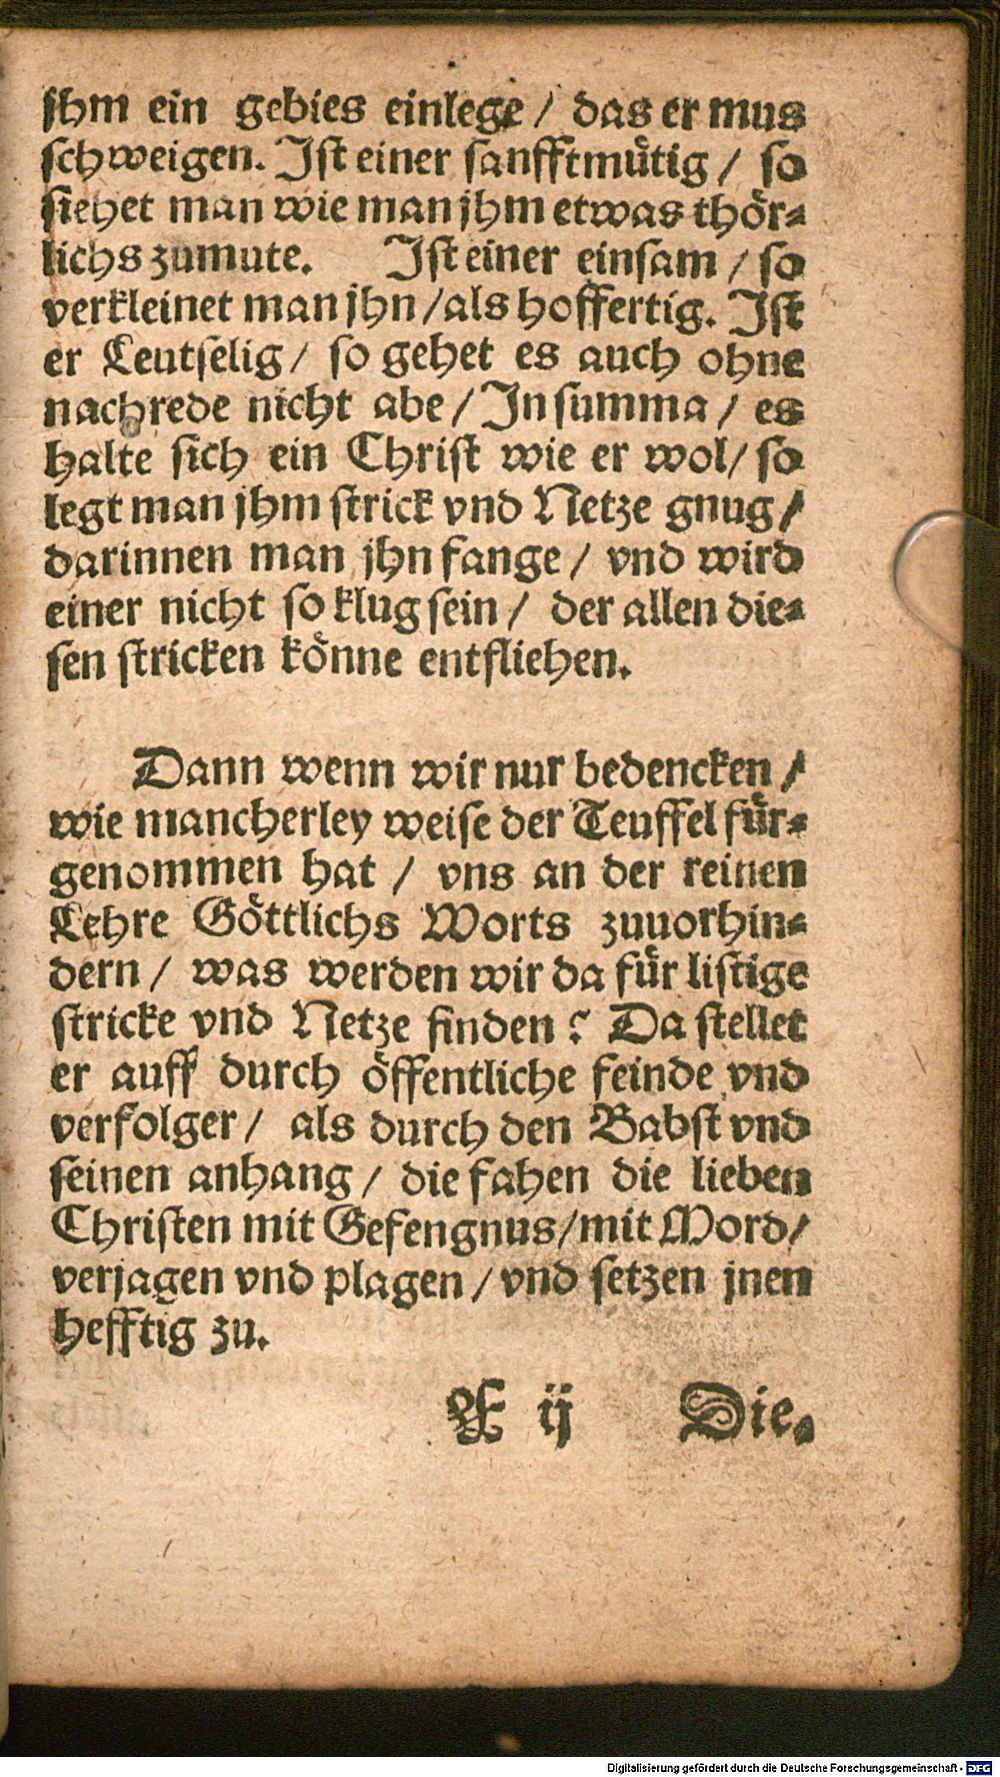 jhm ein gebies einlege / das er mus
schweigen. Ist einer sanfftmütig / so
siehet man wie man jhm etwas thör-
lichs zumute. Ist einer einsam / so
verkleinet man jhn / als hoffertig. Ist
er Leutselig / so gehet es auch ohne
nachrede nicht abe / In summa / es
halte sich ein Christ wie er wol / so
legt man jhm strick vnd Netze gnug /
darinnen man jhn fange / vnd wird
einer nicht so klug sein / der allen die-
sen stricken könne entfliehen.
Dann wenn wir nur bedencken /
wie mancherley weise der Teuffel für-
genommen hat / vns an der reinen
Lehre Göttlichs Worts zuuorhin-
dern / was werden wir da für listige
stricke vnd Netze finden? Da stellet
er auff durch öffentliche feinde vnd
verfolger / als durch den Babst vnd
seinen anhang / die fahen die lieben
Christen mit Gefengnus / mit Mord /
verjagen vnd plagen / vnd setzen jnen
hefftig zu.
E ij Die-
Digitalisierung gefördert durch die Deutsche Forschungsgemeinschaft - DFG